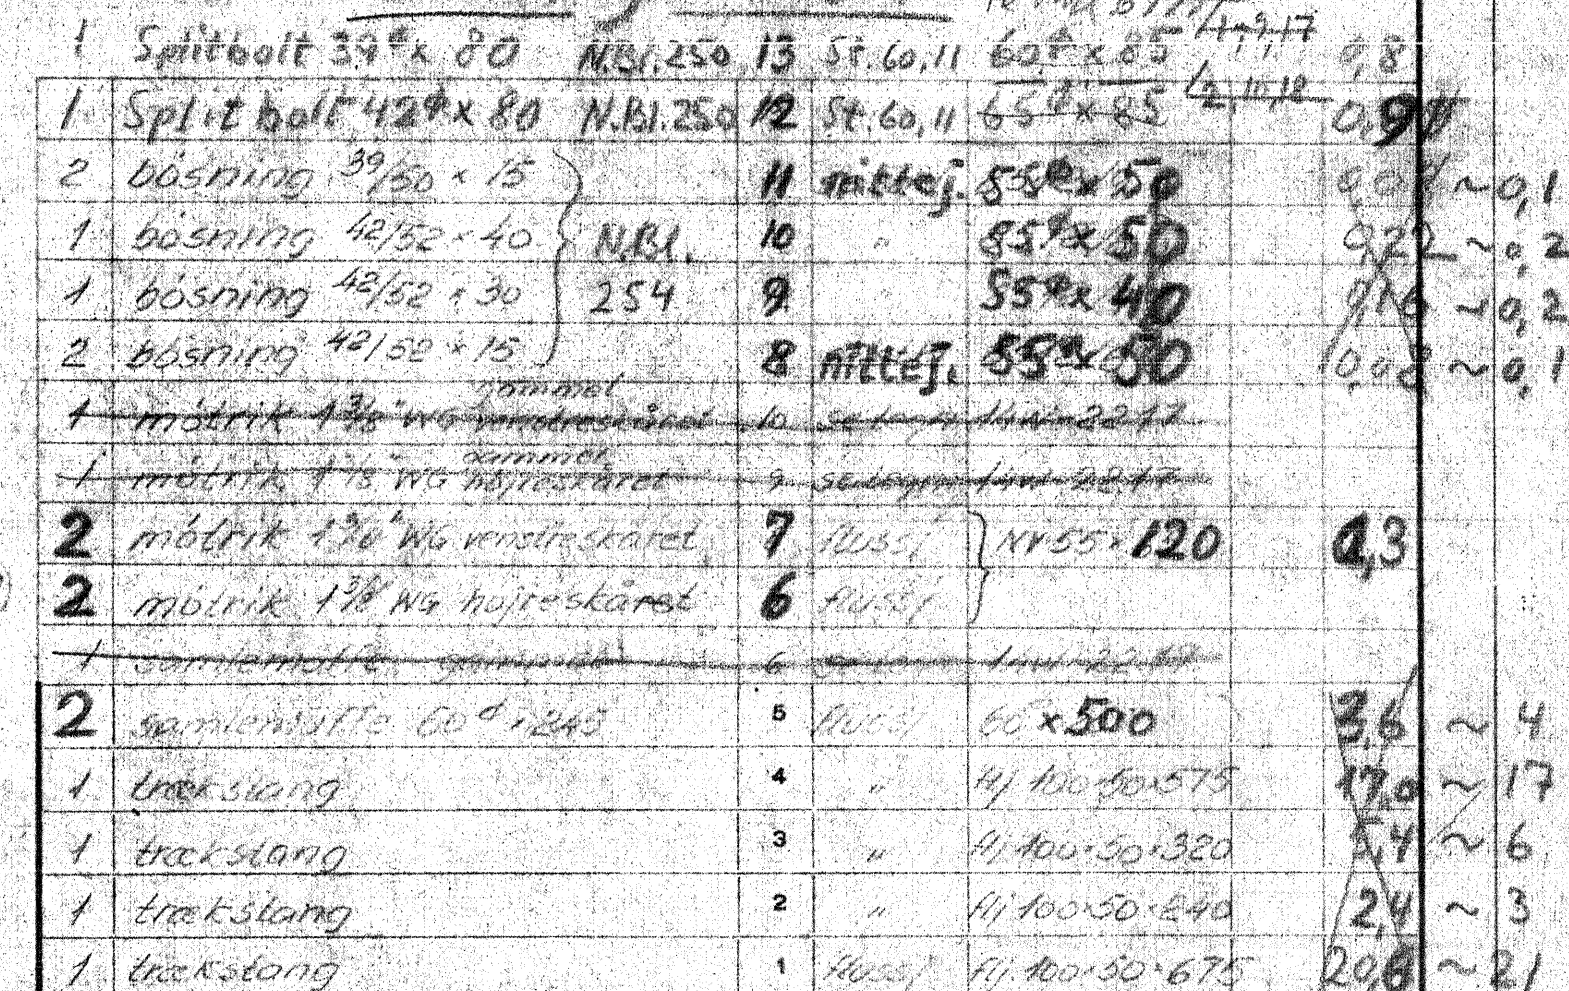 1 Splitbolt 39ø x 80 N.Bl.250 13 St.60,11 60ø x 85 /4,9,17 0,8
1 Splitbolt 42ø x 80 N.Bl.250 12 St.60,11 65ø x 85 /2,10,18 0,9
2 bösning 39/50 x 15 11 nittej. 55ø x 50 ~0,1
1 bösning 42/52 x 40 N.Bl. 10 " 55ø x 50 0,22 ~0,2
1 bösning 42/52 x 30 254 9 " 55ø x 40 0,16 ~0,2
2 bösning 42/52 x 15 8 nittej. 55ø x 50 0,08 ~0,1
gammel
1 mötrik 1 3/8" WG venstreskåret 10 2217
gammel
1 mötrik WG højreskåret 9 2217
2 mötrik WG venstreskåret 7 flussj NV 55 x 120 1,3
2 mötrik 1 3/8" WG højreskåret 6 flussj
1 6
2 samlemuffe 60ø x 245 5 flussj 60 x 500 3,6 ~ 4
1 trækstang 4 " flj 100·50·575 17,0 ~ 17
1 trækstang 3 " flj 100·50·320 5,4 ~ 6
1 trækstang 2 " flj 100·50·240 2,4 ~ 3
1 trækstang 1 flussj flj 100·50·675 20,6 ~ 21